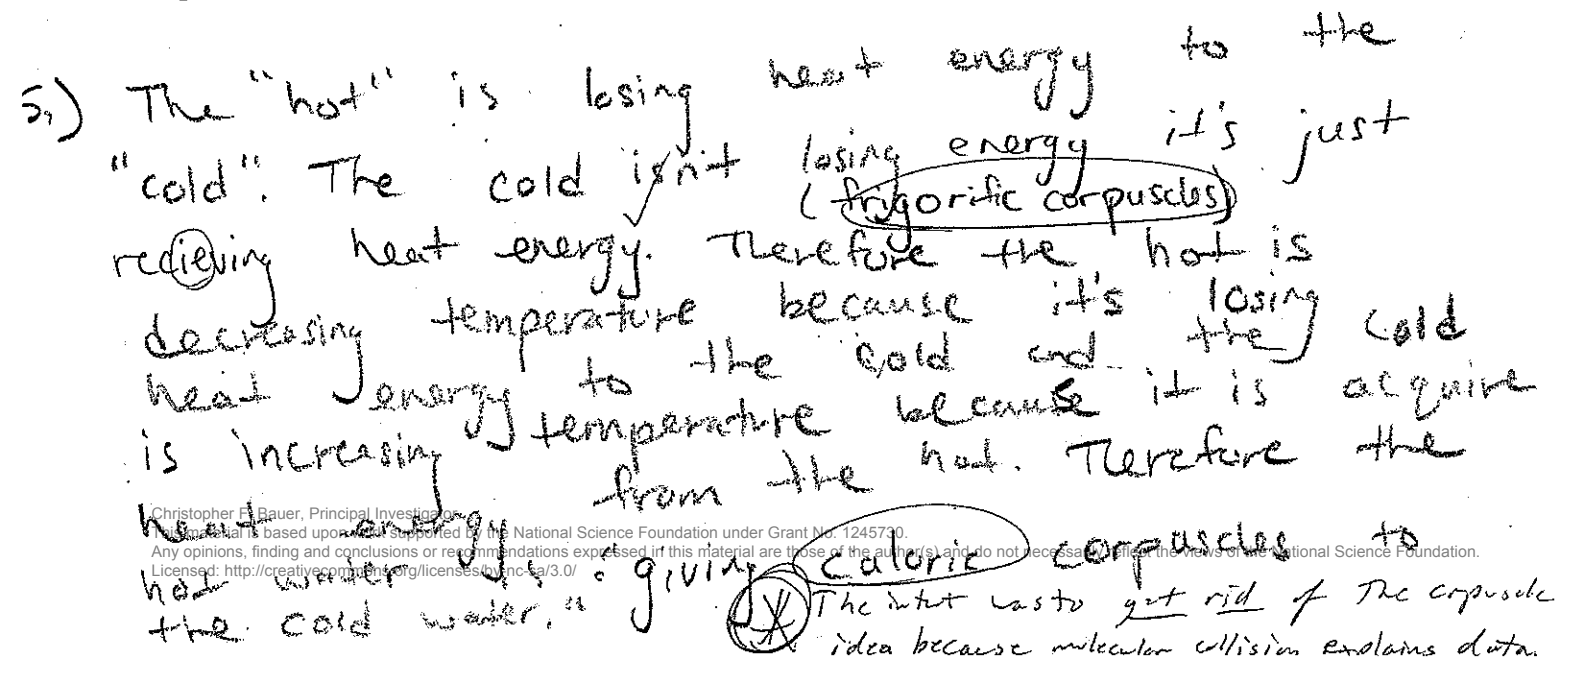 5.) The "hot" is losing heat energy to the
"cold". The cold isn't losing energy it's just
(frigorific corpuscles)
recieving heat energy. Therefore the hot is
decreasing temperature because it's losing
heat energy to the cold and the cold
is increasing temperature because it is acquire
heat energy from the hot. Therefore the
hot water is "giving caloric corpuscles to
the cold water."
Christopher F. Bauer, Principal Investigator
This material is based upon work supported by the National Science Foundation under Grant No. 1245730.
Any opinions, finding and conclusions or recommendations expressed in this material are those of the author(s) and do not necessarily reflect the views of the National Science Foundation.
Licensed: http://creativecommons.org/licenses/by-nc-sa/3.0/
The intent was to get rid of the corpuscle
idea because molecular collision explains data.